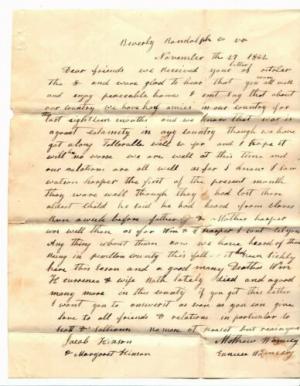 Beverly Randolph co va
November the 27 1862
Dear friends we Received your letter of october
the & and were glad to hear that you were all well
and enjoy peaceable homes I cant say that about
our country we have had armies in our country for
the last eighteen months and we know that war is
a great calamity in any country though we have
got along Tollerable well so far and I hope it
will no worse we are well at this time and
our relations are all well as far as I know I saw
the first of the present month
they were well though they had lost their
oldest child he said he had heard from
than a week before father & Mother harper
are well then as far Wm harper I cant tell you
Any thing about them now we have heard of them
being in pendleton county this fall it been sickly
here this season and a good many Deaths Wm
H currence & wife Both lately died and a good
many more in this county if you get this letter
I want you to answer it as soon as you can give
love to all friends & relations in particular to
no more at present but remains
Jacob Hinson Mathew Wamsley
& Margaret Hinson Wamsley